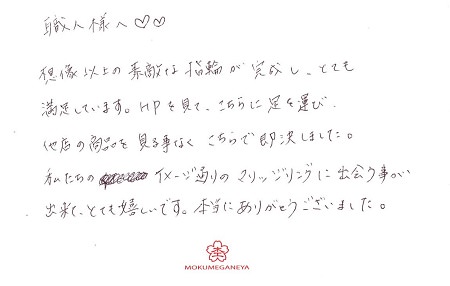 職人様へ♡♡
想像以上の素敵な指輪が完成し、とても
満足しています。HPを見て、こちらに足を運び、
他店の商品を見る事なくこちらで即決しました。
私たちのイメージ通りのマリッジリングに出会う事が
出来て、とても嬉しいです。本当にありがとうございました。
MOKUMEGANEYA